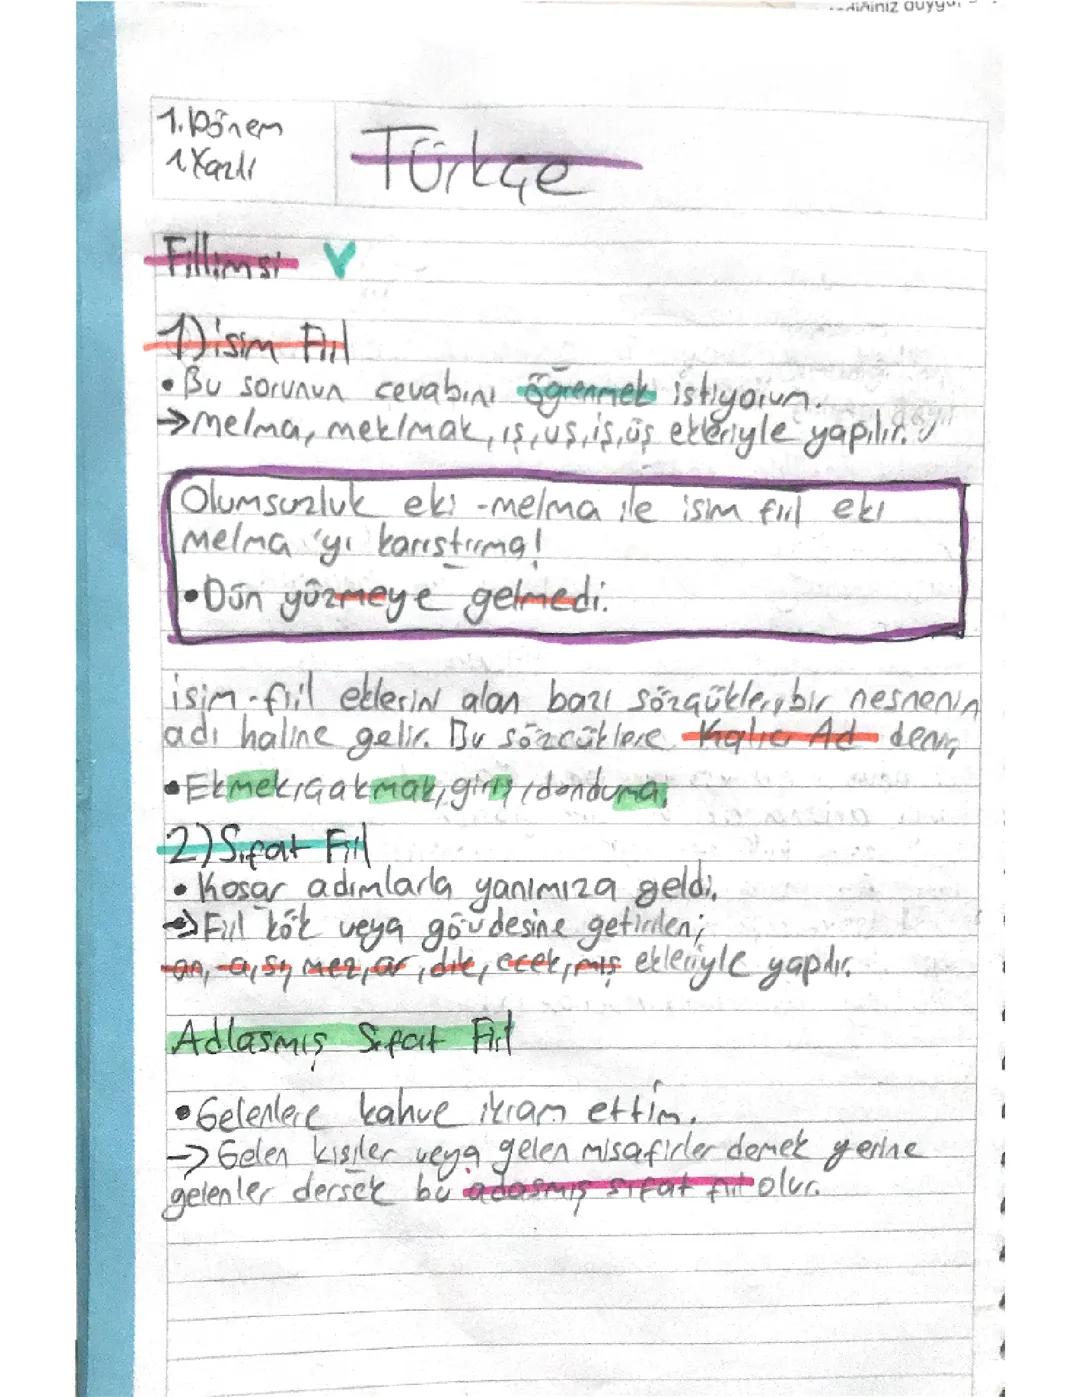 1.Dönem
1.Yazılı
Türkçe
Fiilimsi
1) isim Fiil
• Bu sorunun cevabını öğrenmek istiyorum.
→ me/ma, mek/mak, ış, uş, iş, üş ekleriyle yapılır.
Olumsuzluk eki -me/ma ile isim fiil eki
me/ma 'yı karıştırma!
• Dün yüzmeye gelmedi.
isim-fiil eklerini alan bazı sözcükler, bir nesnenin
adı haline gelir. Bu sözcüklere Kalıcı Ad denir,
• Ekmek, çakmak, giriş, dondurma,
2) Sıfat Fiil
• Koşar adımlarla yanımıza geldi.
→ Fiil kök veya gövdesine getirilen;
-an, -ası, mez, ar, dik, ecek, miş ekleriyle yapılır.
Adlaşmış Sıfat Fiil
• Gelenlere kahve ikram ettim.
→ Gelen kişiler veya gelen misafirler demek yerine
gelenler dersek bu adaşmış sıfat fiil olur.